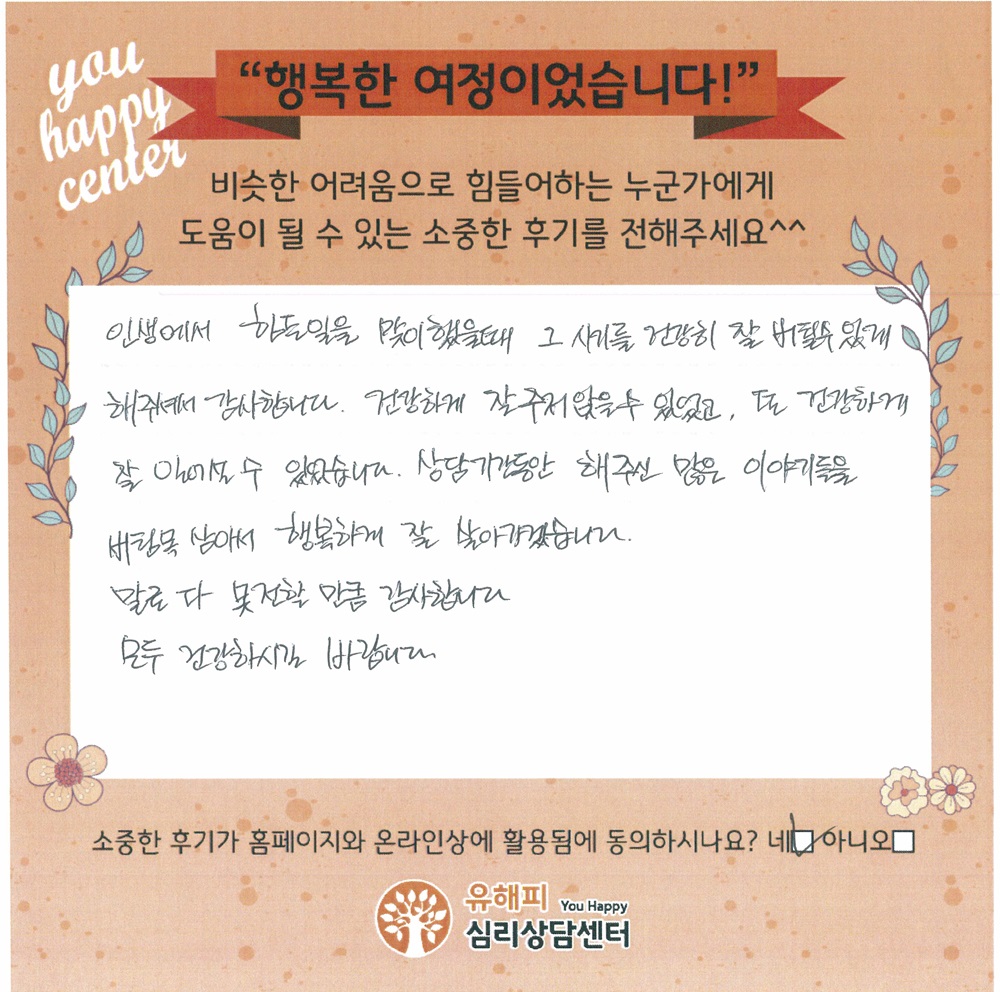 you
happy
center
“행복한 여정이었습니다!”
비슷한 어려움으로 힘들어하는 누군가에게
도움이 될 수 있는 소중한 후기를 전해주세요^^
인생에서 힘든일을 맞이했을때 그 시기를 건강히 잘 버틸수있게
해주셔서 감사합니다. 건강하게 잘 주저앉을수 있었고, 또 건강하게
잘 일어설 수 있었습니다. 상담기간동안 해주신 많은 이야기들을
버팀목 삼아서 행복하게 잘 살아가겠습니다.
말로 다 못전할 만큼 감사합니다
모두 건강하시길 바랍니다.
소중한 후기가 홈페이지와 온라인상에 활용됨에 동의하시나요? 네 아니오
유해피 You Happy
심리상담센터